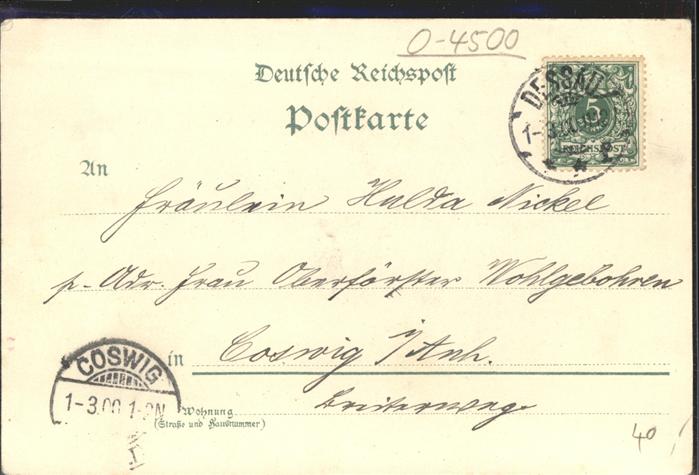 O-4500
Deutsche Reichspost
Postkarte
DESSAU
5
REICHSPOST
An
Fräulein Hulda Nickel
p. Adr. Frau Oberförster Wohlgebohren
in Coswig i/Anh.
Breiterweg
Wohnung
(Straße und Hausnummer)
COSWIG
1-3.00.1-2N
40